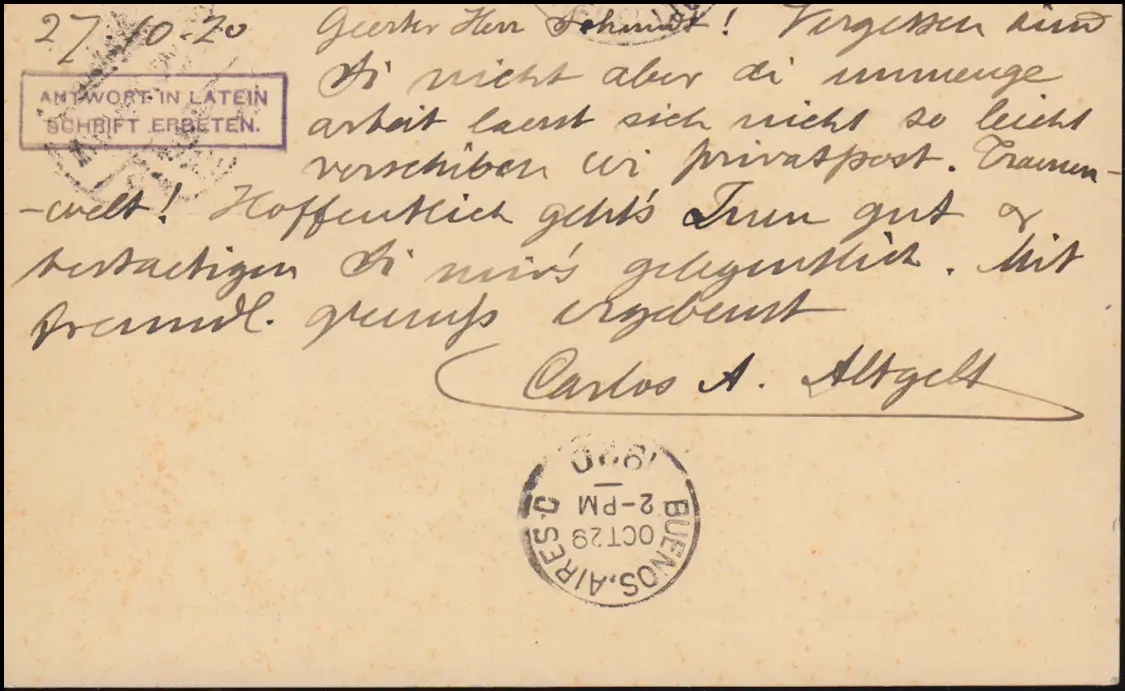 27.10.20
Geerter Herr Schmidt! Vergessen sind
Si nicht aber di unmenge
arbeit laesst sich nicht so leicht
verschiben wi privatpost. Traenen-
-welt! Hoffentlich geht's Inen gut &
bestaetigen Si mir's gelegentlich. Mit
freundl. gruuss ergebenst
Carlos A. Altgelt
ANTWORT IN LATEIN
SCHRIFT ERBETEN.
BUENOS. AIRES
OCT 29
2-PM
1920